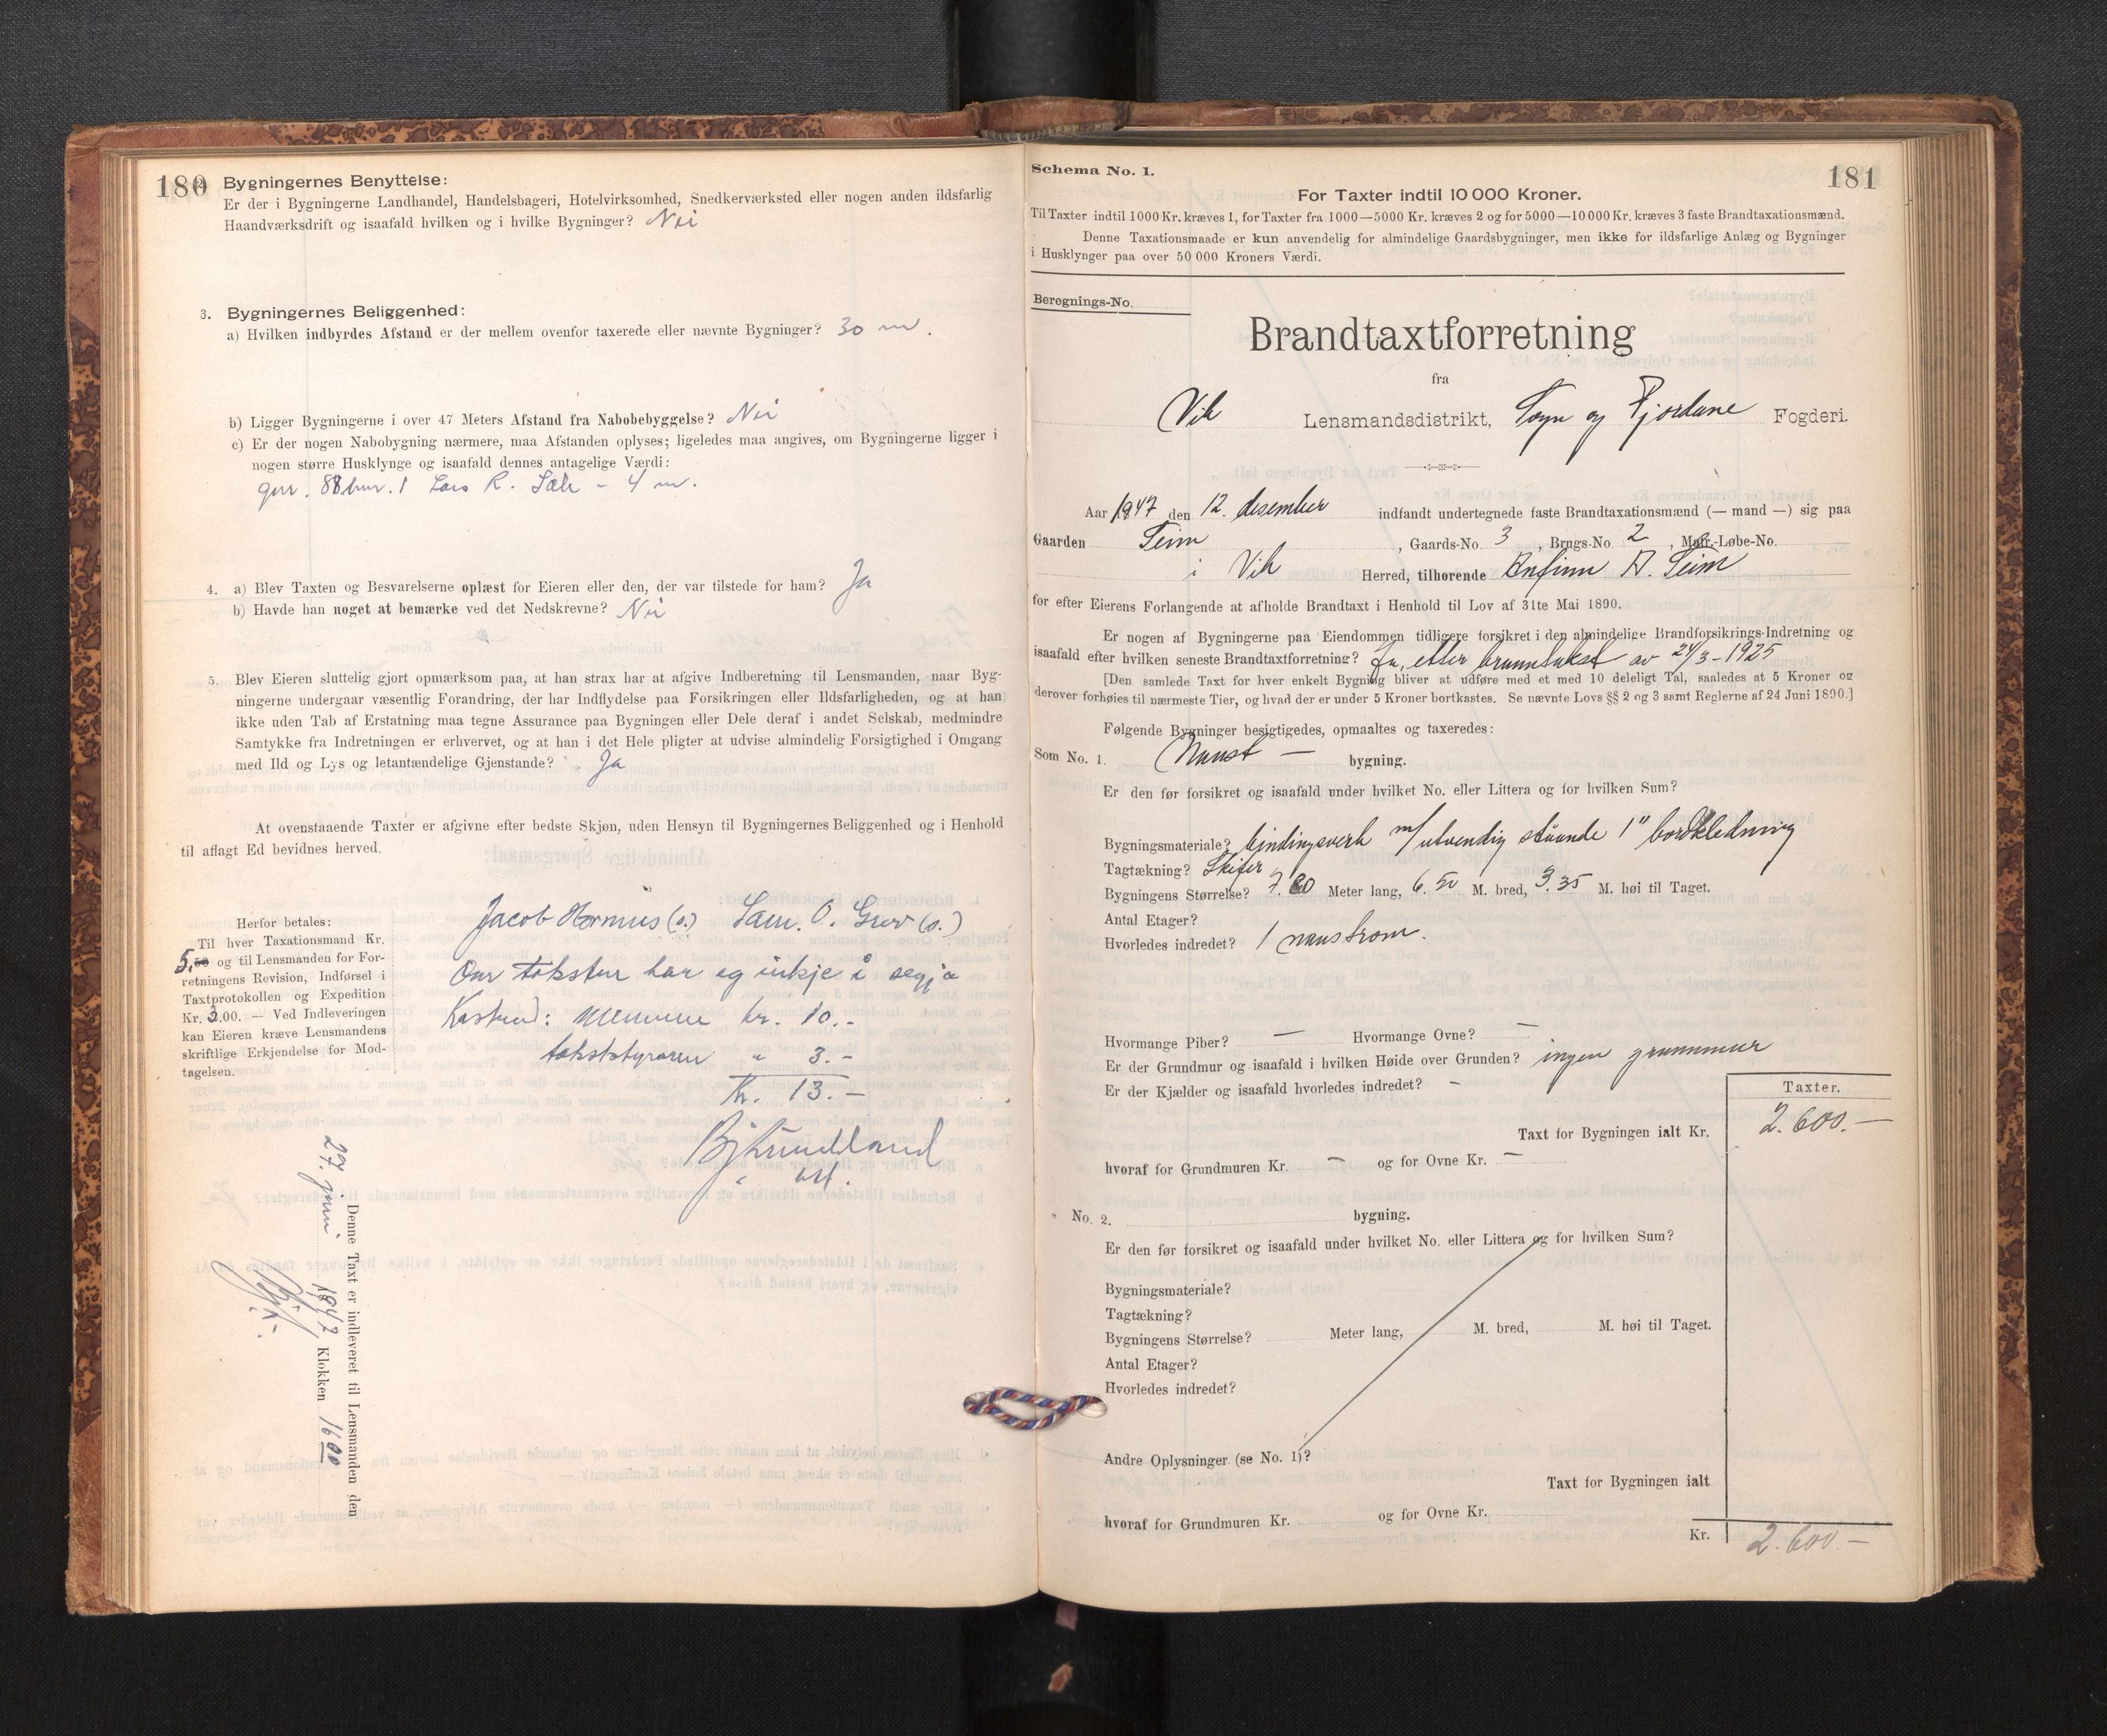 180
2. Bygningernes Benyttelse:
Er der i Bygningerne Landhandel, Handelsbageri, Hotelvirksomhed, Snedkerværksted eller nogen anden ildsfarlig
Haandværksdrift og isaafald hvilken og i hvilke Bygninger? Nei
3. Bygningernes Beliggenhed:
a) Hvilken indbyrdes Afstand er der mellem ovenfor taxerede eller nævnte Bygninger? 30 m.
b) Ligger Bygningerne i over 47 Meters Afstand fra Nabobebyggelse? Nei
c) Er der nogen Nabobygning nærmere, maa Afstanden oplyses; ligeledes maa angives, om Bygningerne ligger i
nogen større Husklynge og isaafald dennes antagelige Værdi:
gnr. 88 bnr. 1 Lars R. Sæle - 4 m.
4. a) Blev Taxten og Besvarelserne oplæst for Eieren eller den, der var tilstede for ham? Ja
b) Havde han noget at bemærke ved det Nedskrevne? Nei
5. Blev Eieren sluttelig gjort opmærksom paa, at han strax har at afgive Indberetning til Lensmanden, naar Byg-
ningerne undergaar væsentlig Forandring, der har Indflydelse paa Forsikringen eller Ildsfarligheden, og at han
ikke uden Tab af Erstatning maa tegne Assurance paa Bygningen eller Dele deraf i andet Selskab, medmindre
Samtykke fra Indretningen er erhvervet, og at han i det Hele pligter at udvise almindelig Forsigtighed i Omgang
med Ild og Lys og letantændelige Gjenstande? Ja
At ovenstaaende Taxter er afgivne efter bedste Skjøn, uden Hensyn til Bygningernes Beliggenhed og i Henhold
til aflagt Ed bevidnes herved.
Herfor betales:
Til hver Taxationsmand Kr.
5,00 og til Lensmanden for For-
retningens Revision, Indførsel i
Taxtprotokollen og Expedition
Kr. 3.00. — Ved Indleveringen
kan Eieren kræve Lensmandens
skriftlige Erkjendelse for Mod-
tagelsen.
Jacob Hormnes (s.) Sam. O. Grov (s.)
Om taksten har eg inkje å segja
Kostnad: Mennene kr. 10.-
takststyraren " 3.-
Kr. 13.-
Denne Taxt er indleveret til Lensmanden den
27. juni 1947 Klokken 16 00
181
Schema No. 1.
For Taxter indtil 10 000 Kroner.
Til Taxter indtil 1000 Kr. kræves 1, for Taxter fra 1000—5000 Kr. kræves 2 og for 5000—10 000 Kr. kræves 3 faste Brandtaxationsmænd.
Denne Taxationsmaade er kun anvendelig for almindelige Gaardsbygninger, men ikke for ildsfarlige Anlæg og Bygninger
i Husklynger paa over 50 000 Kroners Værdi.
Beregnings-No.
Brandtaxtforretning
fra
Vik Lensmandsdistrikt, Sogn og Fjordane Fogderi.
Aar 1947 den 12. desember indfandt undertegnede faste Brandtaxationsmænd (— mand —) sig paa
Gaarden Seim, Gaards-No. 3, Brugs-No. 2, Matr.-Løbe-No.
i Vik Herred, tilhørende Anfinn A. Seim
for efter Eierens Forlangende at afholde Brandtaxt i Henhold til Lov af 31te Mai 1890.
Er nogen af Bygningerne paa Eiendommen tidligere forsikret i den almindelige Brandforsikrings-Indretning og
isaafald efter hvilken seneste Brandtaxtforretning? Ja, etter branntakst av 24/3-1925
[Den samlede Taxt for hver enkelt Bygning bliver at udføre med et med 10 deleligt Tal, saaledes at 5 Kroner og
derover forhøies til nærmeste Tier, og hvad der er under 5 Kroner bortkastes. Se nævnte Lovs §§ 2 og 3 samt Reglerne af 24 Juni 1890.]
Følgende Bygninger besigtigedes, opmaaltes og taxeredes:
Som No. 1. Naust — bygning.
Er den før forsikret og isaafald under hvilket No. eller Littera og for hvilken Sum?
Bygningsmateriale? bindingsverk m/ utvendig stående 1" bordkledning
Tagtækning? Skifer
Bygningens Størrelse? 7.80 Meter lang, 6.50 M. bred, 3.35 M. høi til Taget.
Antal Etager?
Hvorledes indredet? 1 naustrom.
Hvormange Piber? — Hvormange Ovne? —
Er der Grundmur og isaafald i hvilken Høide over Grunden? ingen grunnmur
Er der Kjælder og isaafald hvorledes indredet? -
Taxter.
Taxt for Bygningen ialt Kr. 2.600.—
hvoraf for Grundmuren Kr. — og for Ovne Kr. —
" No. 2. bygning.
Er den før forsikret og isaafald under hvilket No. eller Littera og for hvilken Sum?
Bygningsmateriale?
Tagtækning?
Bygningens Størrelse? Meter lang, M. bred, M. høi til Taget.
Antal Etager?
Hvorledes indredet?
Andre Oplysninger (se No. 1)?
Taxt for Bygningen ialt
hvoraf for Grundmuren Kr. og for Ovne Kr.
Kr. 2.600.—